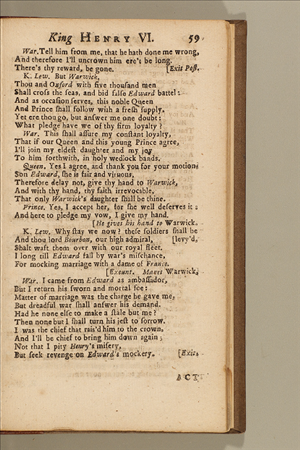 King HENRY VI. 59
War. Tell him from me, that he hath done me wrong,
And therefore I'll uncrown him ere't be long.
There's thy reward, be gone. [Exit Post.
K. Lew. But Warwick,
Thou and Oxford with five thousand men
Shall cross the seas, and bid false Edward battel:
And as occasion serves, this noble Queen
And Prince shall follow with a fresh supply.
Yet ere thou go, but answer me one doubt:
What pledge have we of thy firm loyalty?
War. This shall assure my constant loyalty,
That if our Queen and this young Prince agree,
I'll join my eldest daughter and my joy
To him forthwith, in holy wedlock bands.
Queen. Yes I agree, and thank you for your motion:
Son Edward, she is fair and virtuous,
Therefore delay not, give thy hand to Warwick,
And with thy hand, thy faith irrevocable,
That only Warwick's daughter shall be thine.
Prince. Yes, I accept her, for she well deserves it:
And here to pledge my vow, I give my hand.
[He gives his hand to Warwick.
K. Lew. Why stay we now? these soldiers shall be
And thou lord Bourbon, our high admiral, [levy'd,
Shalt waft them over with our royal fleet.
I long till Edward fall by war's mischance,
For mocking marriage with a dame of France.
[Exeunt. Manet Warwick.
War. I came from Edward as ambassador,
But I return his sworn and mortal foe:
Matter of marriage was the charge he gave me,
But dreadful war shall answer his demand.
Had he none else to make a stale but me?
Then none but I shall turn his jest to sorrow.
I was the chief that rais'd him to the crown,
And I'll be chief to bring him down again;
Not that I pity Henry's misery,
But seek revenge on Edward's mockery. [Exit.
ACT